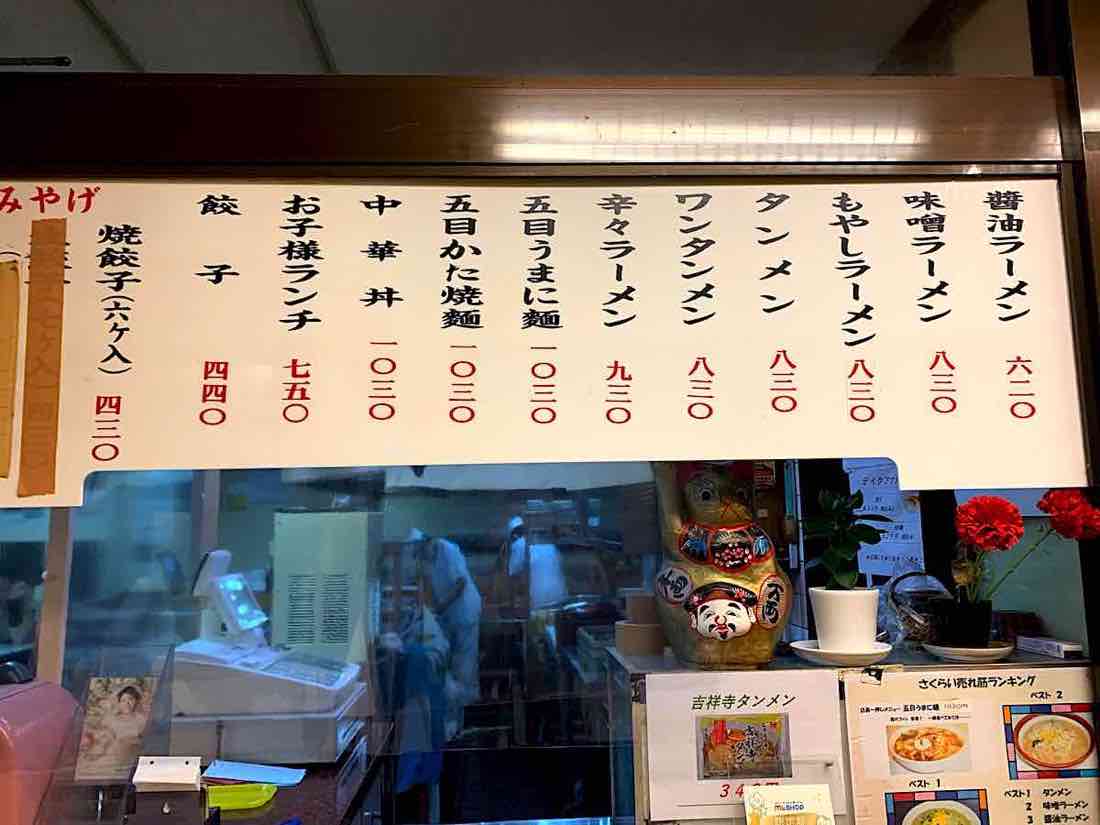 醤油ラーメン 六二〇
味噌ラーメン 八三〇
もやしラーメン 八三〇
タンメン 八三〇
ワンタンメン 八三〇
辛々ラーメン 九三〇
五目うまに麺 一〇三〇
五目かた焼麺 一〇三〇
中華丼 一〇三〇
お子様ランチ 七五〇
餃子 四四〇
みやげ
焼餃子(六ヶ入) 四三〇
吉祥寺タンメン
さくらい売れ筋ランキング
ベスト 2
店長一押しメニュー 五目うまに麺
ベスト 1
ベスト1 タンメン
2 味噌ラーメン
3 醤油ラーメン